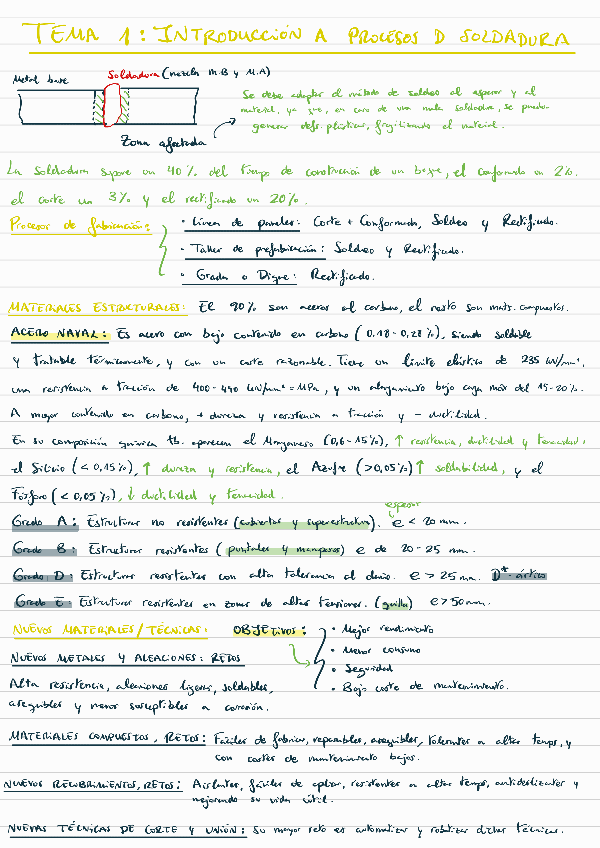 TEMA 1: INTRODUCCIÓN A PROCESOS D SOLDADURA
Metal base
Soldadura (mezcla M.B y M.A)
Zona afectada
Se debe adaptar el método de soldeo al espesor y al
material, ya que, en caso de una mala soldadura, se pueden
generar defs. plásticas, fragilizando el material.
La soldadura supone un 40% del tiempo de construcción de un buque, el conformado un 2%.
el corte un 3% y el rectificado un 20%.
Procesos de fabricación:
• Línea de paneles: Corte + Conformado, Soldeo y Rectificado.
• Taller de prefabricación: Soldeo y Rectificado.
• Grada o Dique: Rectificado.
MATERIALES ESTRUCTURALES: El 90% son aceros al carbono, el resto son mats. compuestos.
ACERO NAVAL: Es acero con bajo contenido en carbono (0,18-0,28%), siendo soldable
y tratable térmicamente, y con un coste razonable. Tiene un límite elástico de 235 kN/mm²,
una resistencia a tracción de 400-490 kN/mm² = MPa, y un alargamiento bajo carga más del 15-20%.
A mayor contenido en carbono, + dureza y resistencia a tracción y - ductilidad.
En su composición química tb. aparecen el Manganeso (0,6-15%), ↑ resistencia, ductilidad y tenacidad,
el Silicio (< 0,15%), ↑ dureza y resistencia, el Azufre (>0,05%) ↑ soldabilidad, y el
Fósforo (< 0,05%), ↓ ductilidad y tenacidad.
espesor
Grado A: Estructuras no resistentes (cubiertas y superestructura). e < 20 mm.
Grado B: Estructuras resistentes (puntales y mamparos) e de 20-25 mm.
Grado D: Estructuras resistentes con alta tolerancia al daño. e > 25 mm. D* - ártico
Grado E: Estructuras resistentes en zonas de altas tensiones. (quilla) e > 50 mm.
NUEVOS MATERIALES/TÉCNICAS: OBJETIVOS:
• Mejor rendimiento
• Menor consumo
• Seguridad
• Bajo coste de mantenimiento.
NUEVOS METALES Y ALEACIONES: RETOS
Alta resistencia, aleaciones ligeras, soldables,
asequibles y menos susceptibles a corrosión.
MATERIALES COMPUESTOS, RETOS: Fáciles de fabricar, reparables, asequibles, tolerantes a altas temps, y
con costes de mantenimiento bajos.
NUEVOS RECUBRIMIENTOS, RETOS: Aislantes, fáciles de aplicar, resistentes a altas temps, antideslizantes y
mejorando su vida útil.
NUEVAS TÉCNICAS DE CORTE Y UNIÓN: Su mayor reto es automatizar y robotizar dichas técnicas.